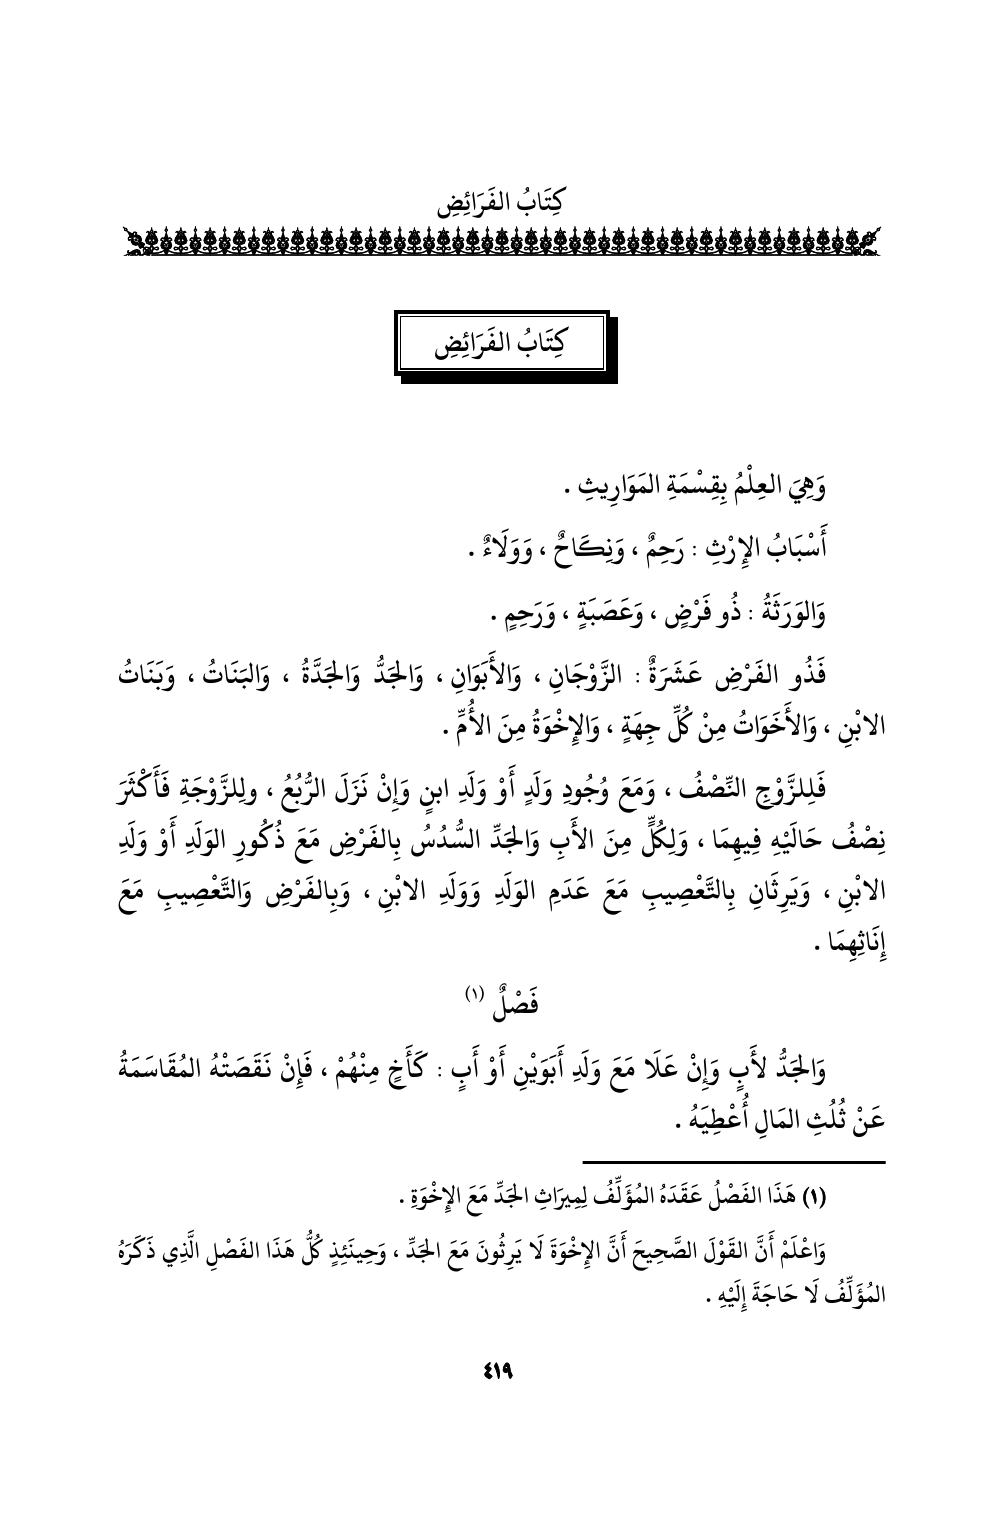 كِتَابُ الفَرَائِضِ
كِتَابُ الفَرَائِضِ
وَهِيَ العِلْمُ بِقِسْمَةِ المَوَارِيثِ .
أَسْبَابُ الإِرْثِ : رَحِمٌ ، وَنِكَاحٌ ، وَوَلَاءٌ .
وَالوَرَثَةُ : ذُو فَرْضٍ ، وَعَصَبَةٍ ، وَرَحِمٍ .
فَذُو الفَرْضِ عَشَرَةٌ : الزَّوْجَانِ ، وَالأَبَوَانِ ، وَالجَدُّ وَالجَدَّةُ ، وَالبَنَاتُ ، وَبَنَاتُ
الابْنِ ، وَالأَخَوَاتُ مِنْ كُلِّ جِهَةٍ ، وَالإِخْوَةُ مِنَ الأُمِّ .
فَلِلزَّوْجِ النِّصْفُ ، وَمَعَ وُجُودِ وَلَدٍ أَوْ وَلَدِ ابنٍ وَإِنْ نَزَلَ الرُّبُعُ ، ولِلزَّوْجَةِ فَأَكْثَرَ
نِصْفُ حَالَيْهِ فِيهِمَا ، وَلِكُلٍّ مِنَ الأَبِ وَالجَدِّ السُّدُسُ بِالفَرْضِ مَعَ ذُكُورِ الوَلَدِ أَوْ وَلَدِ
الابْنِ ، وَيَرِثَانِ بِالتَّعْصِيبِ مَعَ عَدَمِ الوَلَدِ وَوَلَدِ الابْنِ ، وَبِالفَرْضِ وَالتَّعْصِيبِ مَعَ
إِنَاثِهِمَا .
فَصْلٌ (١)
وَالجَدُّ لأَبٍ وَإِنْ عَلَا مَعَ وَلَدِ أَبَوَيْنِ أَوْ أَبٍ : كَأَخٍ مِنْهُمْ ، فَإِنْ نَقَصَتْهُ المُقَاسَمَةُ
عَنْ ثُلُثِ المَالِ أُعْطِيَهُ .
(١) هَذَا الفَصْلُ عَقَدَهُ المُؤَلِّفُ لِمِيرَاثِ الجَدِّ مَعَ الإِخْوَةِ .
وَاعْلَمْ أَنَّ القَوْلَ الصَّحِيحَ أَنَّ الإِخْوَةَ لَا يَرِثُونَ مَعَ الجَدِّ ، وَحِينَئِذٍ كُلُّ هَذَا الفَصْلِ الَّذِي ذَكَرَهُ
المُؤَلِّفُ لَا حَاجَةَ إِلَيْهِ .
٤١٩